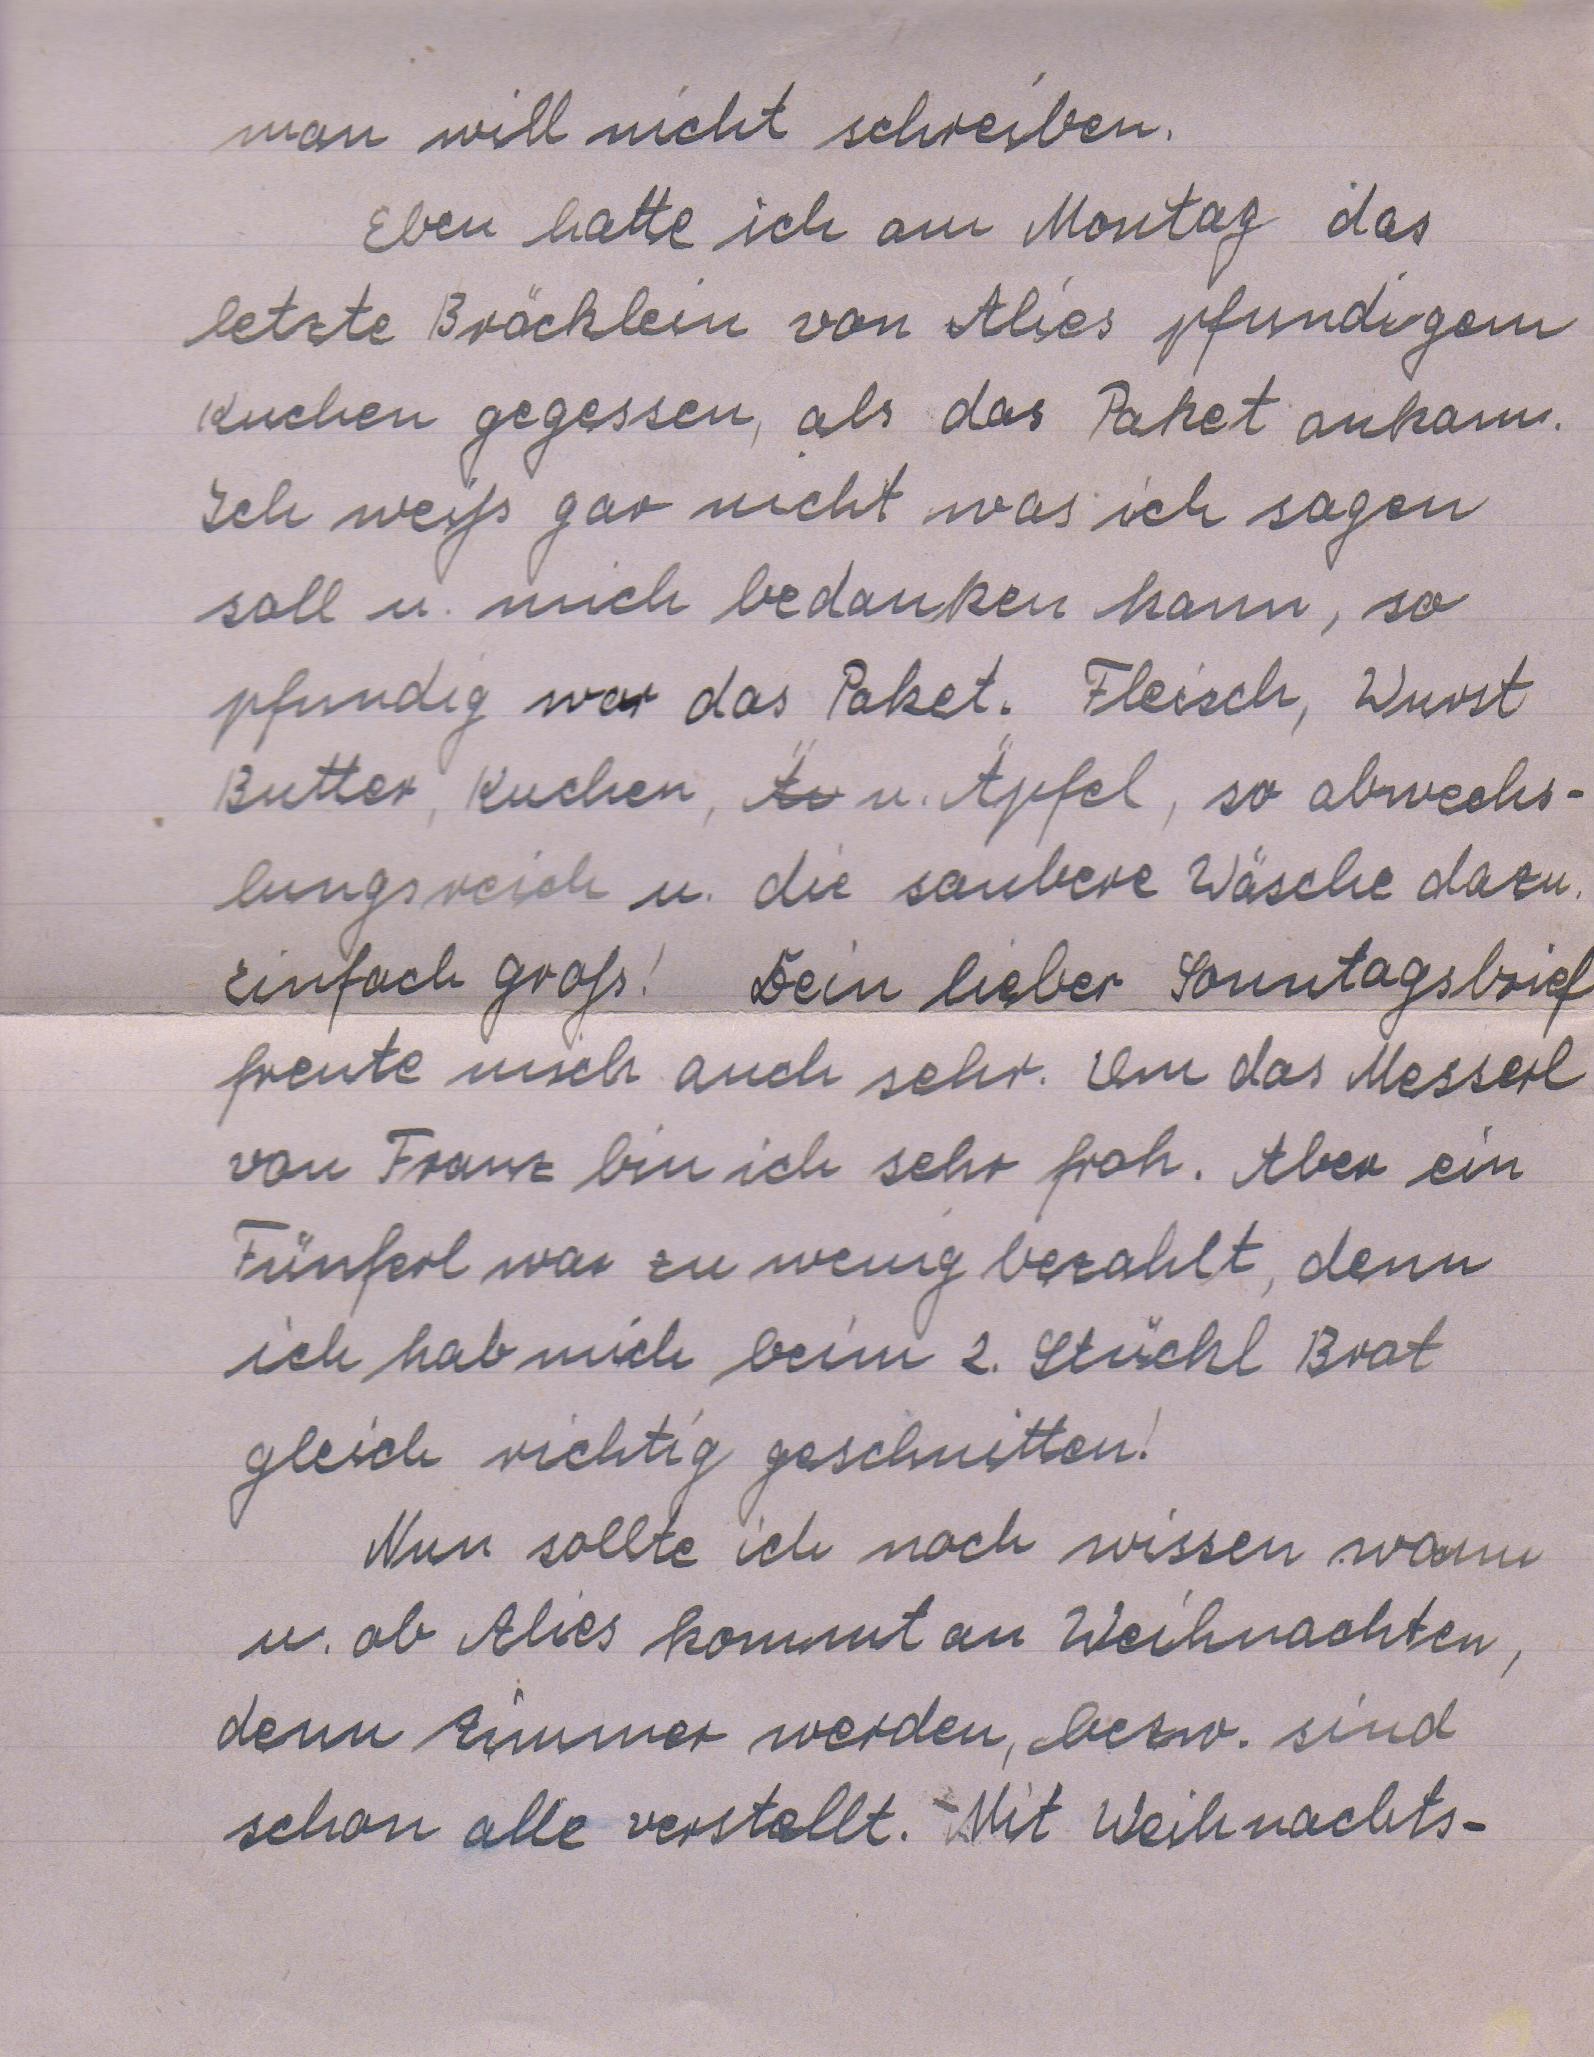 man will nicht schreiben.
Eben hatte ich am Montag das
letzte Bröcklein von Alies pfundigem
Kuchen gegessen, als das Paket ankam.
Ich weiß gar nicht was ich sagen
soll u. mich bedanken kann, so
pfundig war das Paket. Fleisch, Wurst
Butter, Kuchen, u. Äpfel, so abwechs-
lungsreich u. die saubere Wäsche dazu.
Einfach groß! Dein lieber Sonntagsbrief
freute mich auch sehr. Um das Messerl
von Franz bin ich sehr froh. Aber ein
Fünferl war zu wenig bezahlt, denn
ich hab mich beim 2. Stückl Brot
gleich richtig geschnitten!
Nun sollte ich noch wissen wann
u. ob Alies kommt an Weihnachten,
denn Zimmer werden, bezw. sind
schon alle verstellt. Mit Weihnachts-